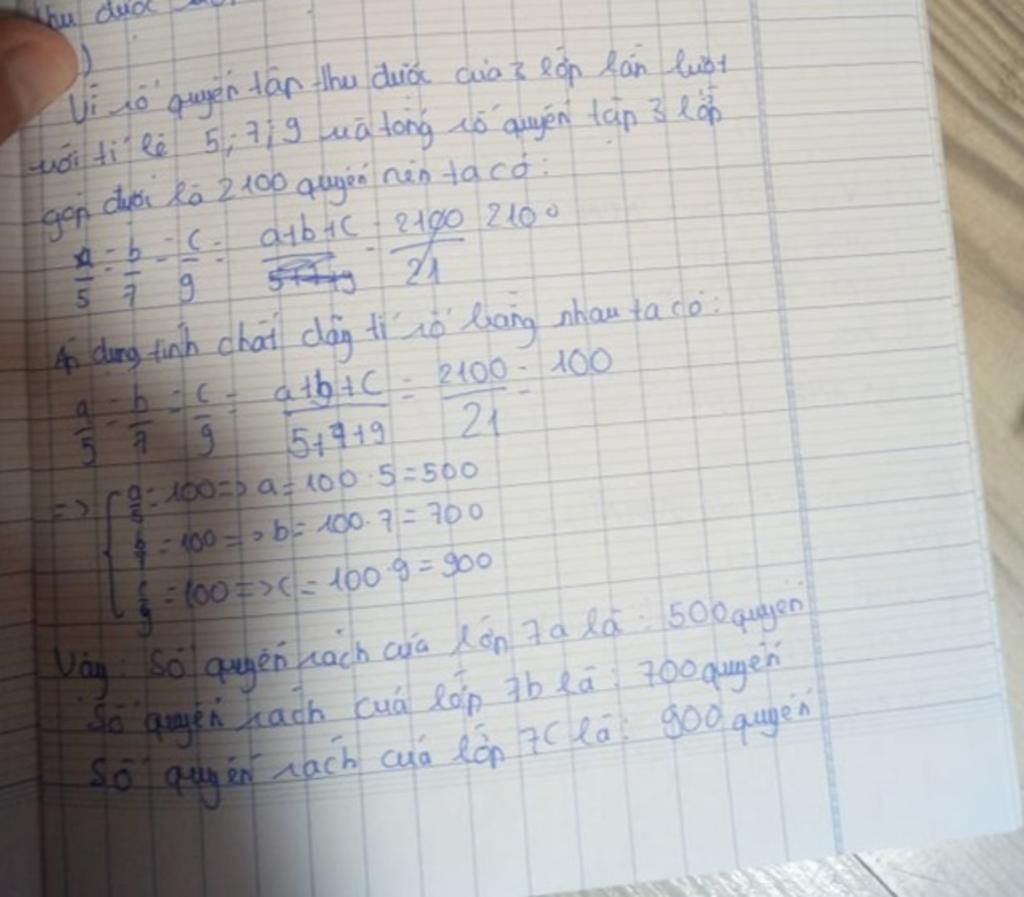 thu được
)
Vì số quyển tập thu được của 3 lớp lần lượt
với tỉ lệ 5; 7; 9 và tổng số quyển tập 3 lớp
góp được là 2100 quyển nên ta có:
a/5 = b/7 = c/9 = a+b+c/5+7+9 = 2100/21 2100
Áp dụng tính chất dãy tỉ số bằng nhau ta có:
a/5 = b/7 = c/9 = a+b+c/5+7+9 = 2100/21 = 100
=> { a/5 = 100 => a = 100 . 5 = 500
b/7 = 100 => b = 100 . 7 = 700
c/9 = 100 => c = 100 . 9 = 900
Vậy: Số quyển sách của lớp 7a là : 500 quyển
Số quyển sách của lớp 7b là : 700 quyển
Số quyển sách của lớp 7C là : 900 quyển